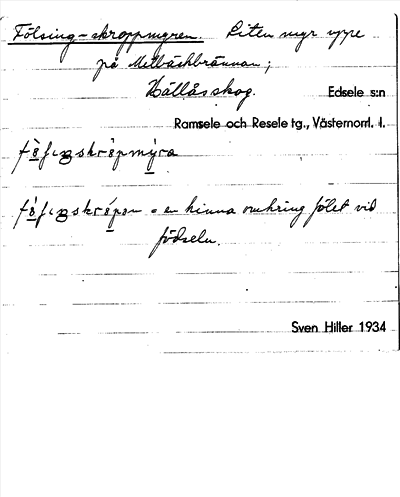 Fölsing-skroppmyren. Liten myr uppe
på Metbäckbrännan;
Hällåsskog. Edsele s:n
Ramsele och Resele tg., Västernorrl. l.
- en hinna omkring fölet vid
födseln.
Sven Hiller 1934